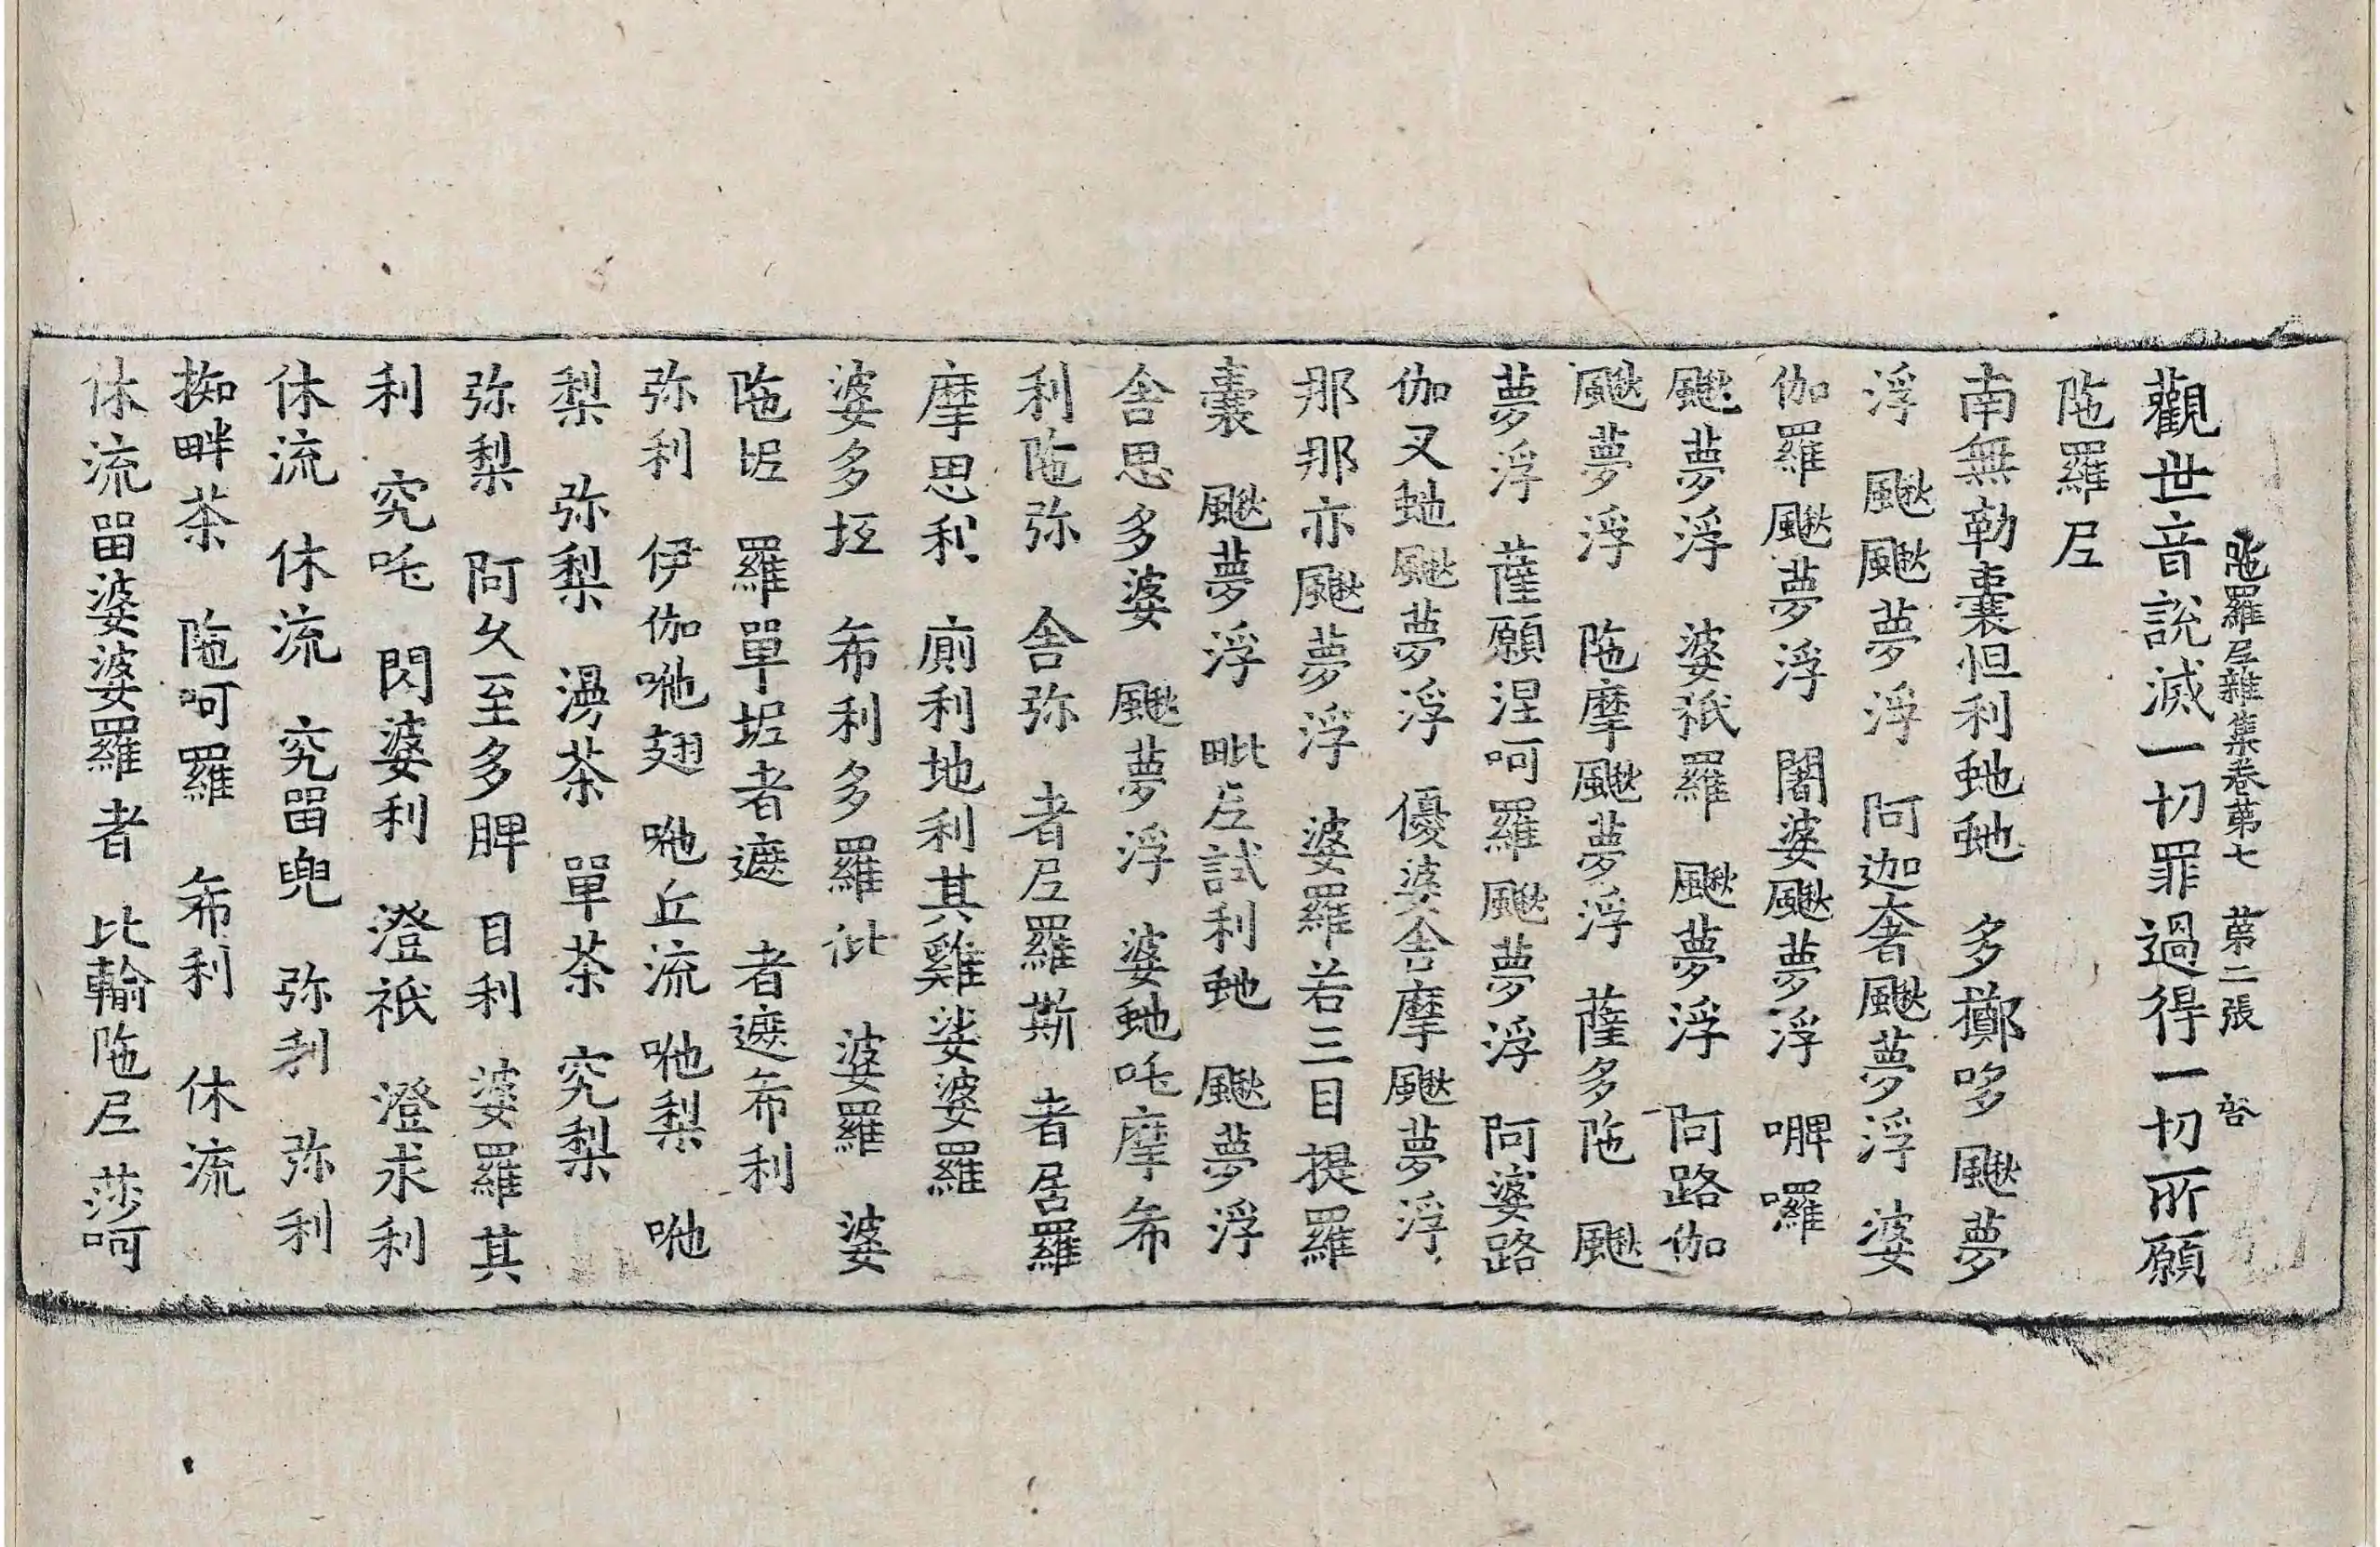 陁羅尼雜集卷苐七 苐二張 谷
觀世音說滅一切罪過得一切所願
陁羅尼
南無勒囊怛利虵虵 多擲哆 颰夢
浮 颰颰夢浮 阿迦奢颰夢浮 婆
伽羅颰夢浮 闍婆颰夢浮 㗑囉
颰夢浮 婆祇羅 颰夢浮 阿路伽
颰夢浮 陁摩颰夢浮 薩多陁 颰
夢浮 薩願涅呵羅颰夢浮 阿婆路
伽叉虵颰夢浮 優婆舍摩颰夢浮
那那亦颰夢浮 婆羅若三目提羅
囊 颰夢浮 毗尼試利虵 颰夢浮
舍思多婆 颰夢浮 婆虵吒摩希
利陁弥 舍弥 者尼羅斯 者居羅
摩思利 廁利地利其雞娑婆羅
婆多坘 希利多羅 婆羅 婆
陁坭 羅單坭者遮 者遮希利
弥利 伊伽吔翅 吔丘流 吔梨 吔
梨 弥梨 湯茶 單茶 究梨
弥梨 阿久至多脾 目利 婆羅其
利 究吒 閃婆利 澄祇 澄求利
休流 休流 究畱兜 弥利 弥利
㨖畔茶 陁呵羅 希利 休流
休流畱婆婆羅者 比輸陁尼 莎呵